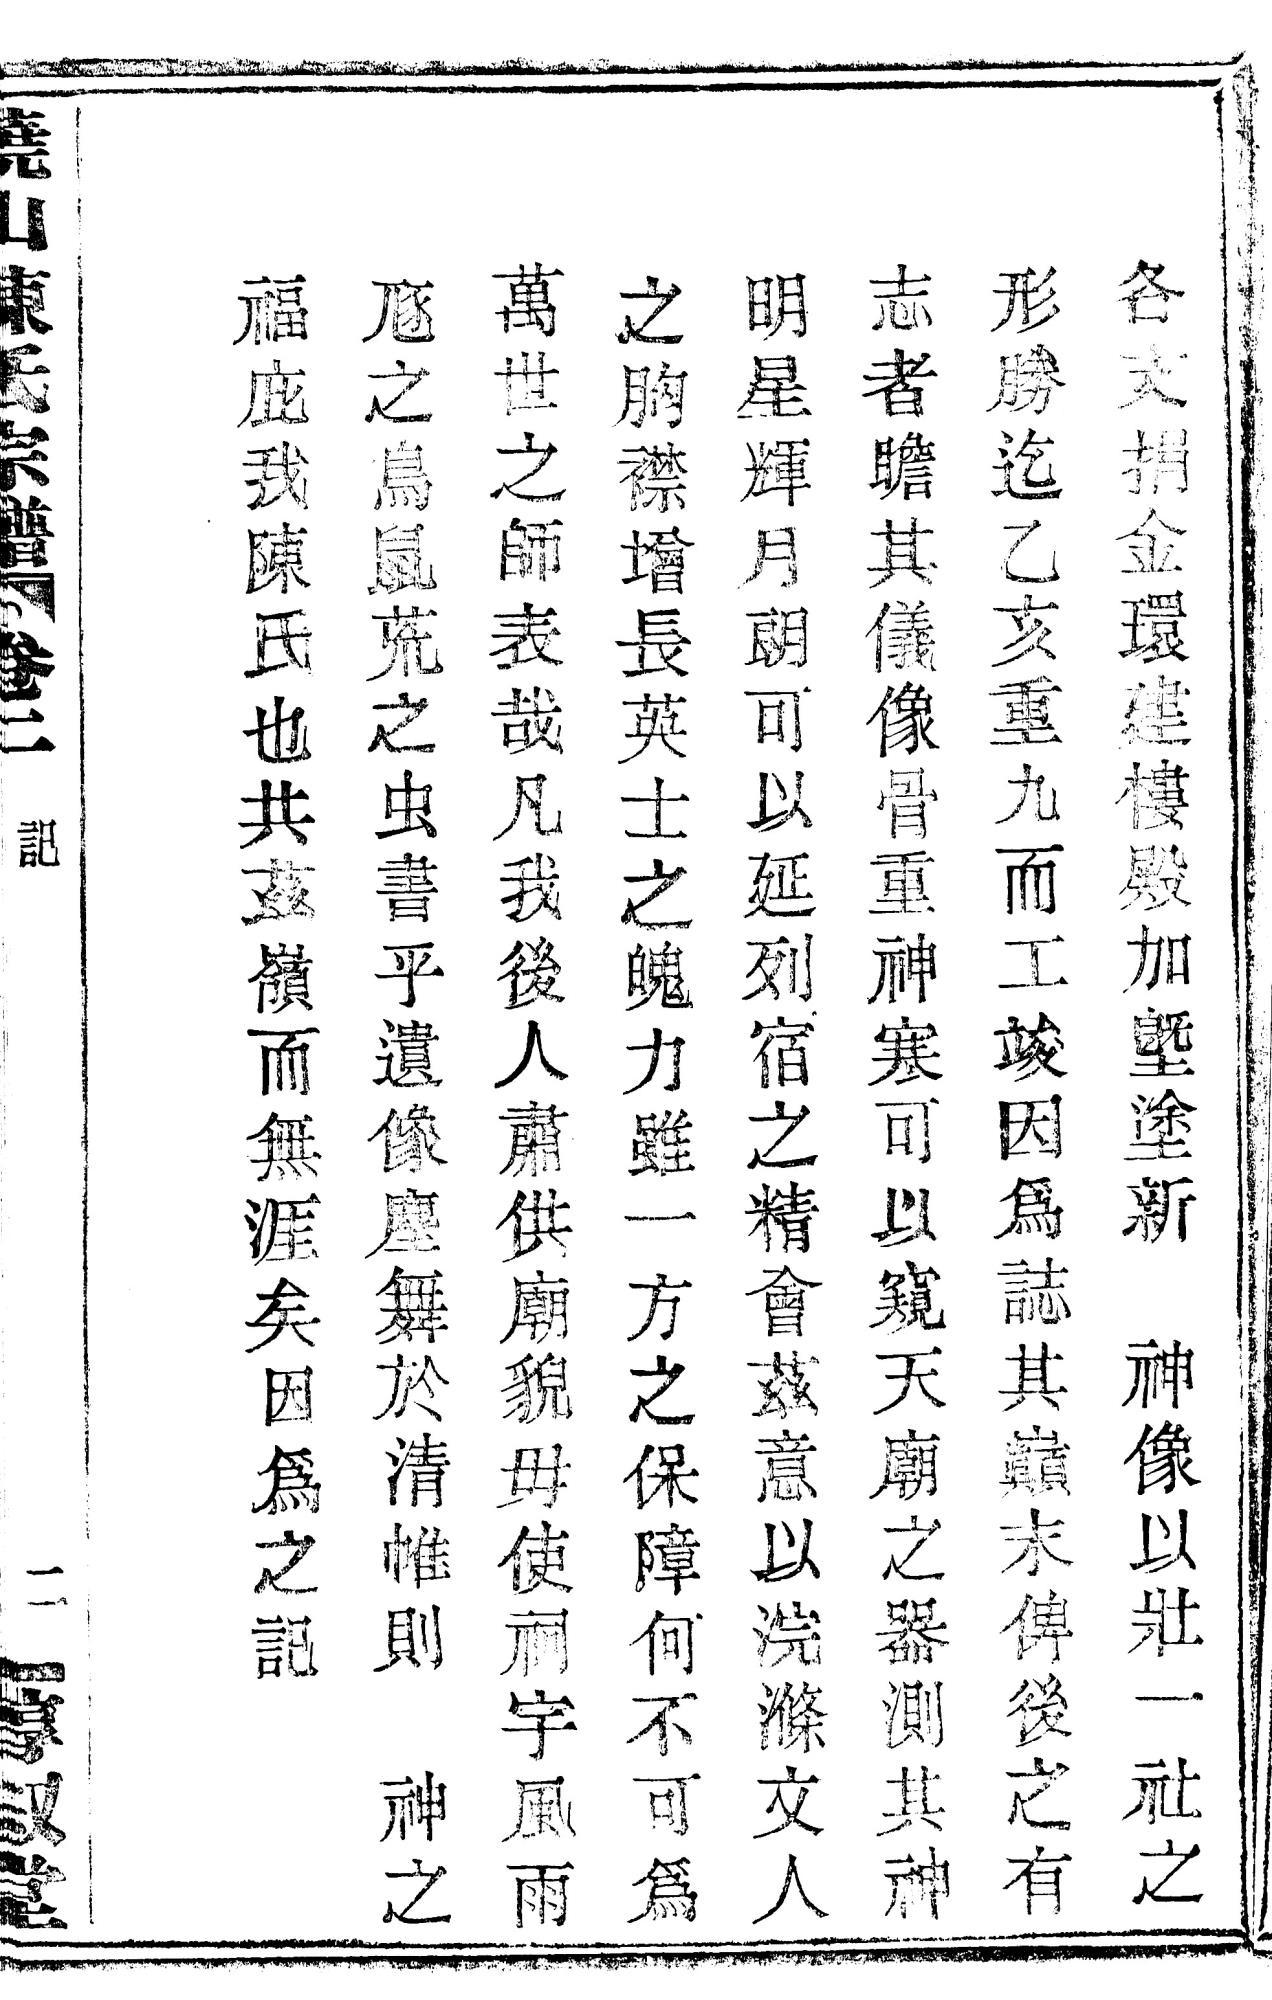 各支捐金環建樓殿加墍塗新　神像以壯一社之
形勝迄乙亥重九而工竣因爲誌其巔末俾後之有
志者瞻其儀像骨重神寒可以窺天廟之器測其神
明星輝月朗可以延列宿之精會茲意以浣滌文人
之胸襟增長英士之魄力雖一方之保障何不可爲
萬世之師表哉凡我後人肅供廟貌毋使祠宇風雨
虺之鳥鼠荒之虫書乎遺像塵舞於清帷則　神之
福庇我陳氏也共茲嶺而無涯矣因爲之記
山陳氏宗譜 卷二 記 二 惇敘堂